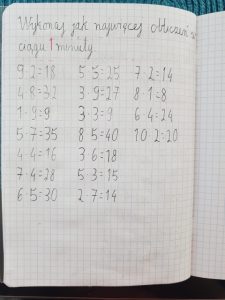 Wykonaj jak najwięcej obliczeń w
ciągu 1 minuty
9·2=18 5·5=25 7·2=14
4·8=32 3·9=27 8·1=8
1·9=9 3·3=9 6·4=24
5·7=35 8·5=40 10·2=20
4·4=16 3·6=18
7·4=28 5·3=15
6·5=30 2·7=14